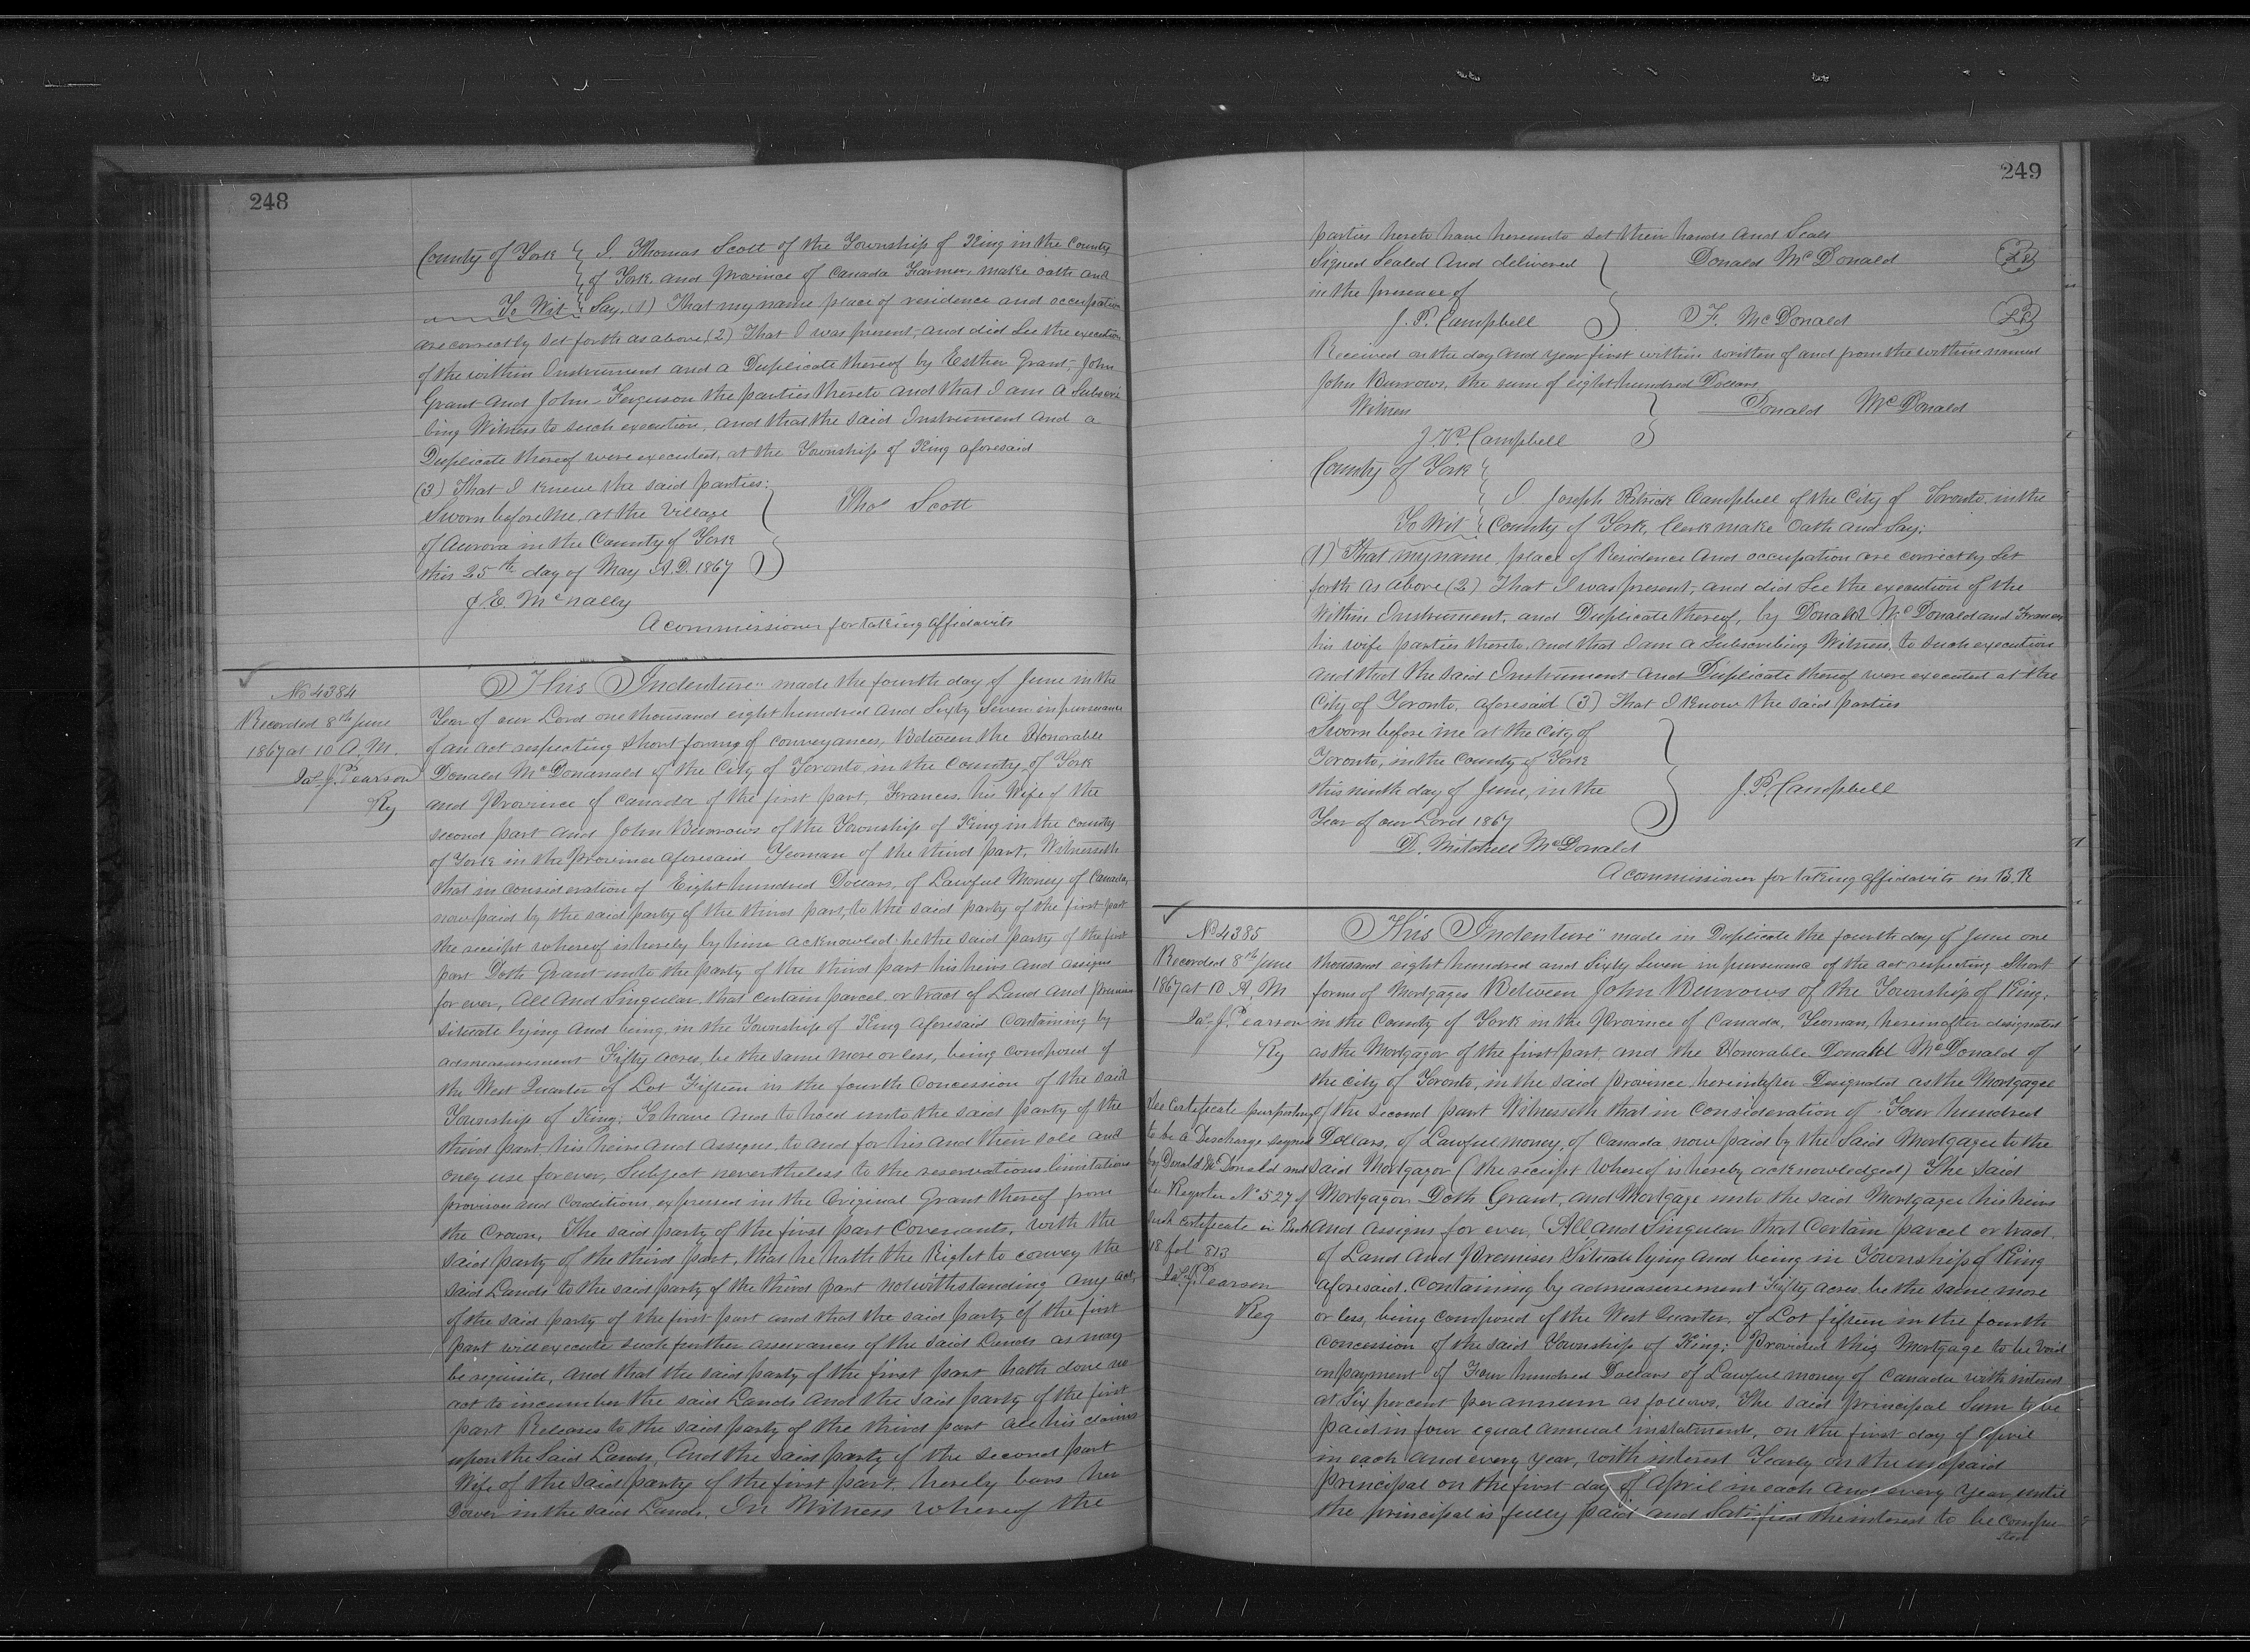 248
County of York } I, Thomas Scott of the Township of King in the County
of York and Province of Canada Farmer make oath and
To Wit } Say. (1) That my name place of residence and occupation
are correctly set forth as above (2) That I was present, and did See the execution
of the within Instrument and a Duplicate thereof by Esther Grant, John
Grant and John Ferguson the parties thereto and that I am a Subscri
bing Witness to such execution, and that the said Instrument and a
Duplicate thereof were executed, at the Township of King aforesaid
(3) That I know the said parties:
Sworn before me, at the Village
Thos Scott
of Aurora in the County of York
this 25th day of May A.D. 1867
J. E. McNally
A commissioner for taking affidavits
No 4384
Recorded 8th June
1867 at 10 A.M.
Jas J. Pearson
Rg
This Indenture" made the fourth day of June in the
Year of our Lord one thousand eight hundred and Sixty Seven in pursuance
of an act respecting Short forms of conveyances, Between the Honorable
Donald McDonanald of the City of Toronto, in the County of York
and Province of Canada of the first part, Frances, his Wife of the
second part and John Burrows of the Township of King in the County
of York in the Province aforesaid Yeoman of the third part, Witnesseth
that in consideration of Eight hundred Dollars, of Lawful Money of Canada,
now paid by the said party of the third part, to the said party of the first part
the receipt whereof is hereby by him acknowled he the said party of the first
part Doth Grant unto the party of the third part his heirs and assigns
for ever, All And Singular that certain parcel or tract of Land and premises
situate lying and being, in the Township of King aforesaid Containing by
admeasurement Fifty acres, be the same more or less, being composed of
the West Quarter of Lot Fifteen in the fourth Concession of the said
Township of King: To have and to hold unto the said party of the
third part, his heirs and assigns, to and for his and their sole and
only use forever, Subject nevertheless to the reservations limitations
provisoes and Conditions expressed in the Original Grant thereof from
the Crown, The said party of the first part Covenants, with the
said party of the third part, that he hath the Right to convey the
said Lands to the said party of the third part notwithstanding any act,
of the said party of the first part and that the said party of the first
part will execute such further assurances of the said Lands as may
be requisite, and that the said party of the first part hath done no
act to incumber the said Lands and the said party of the first
part Releases to the said party of the third part all his claims
upon the Said Lands, And the said party of the second part
Wife of the said party of the first part, hereby bars her
Dower in the said Lands. In Witness whereof the
249
parties hereto have hereunto set their hands and Seals
Signed Sealed And delivered } Donald McDonald LS
in the presence of
J. P. Campbell } F. McDonald LS
Received on the day and year first within written of and from the within named
John Burrows, the sum of eight hundred Dollars
Witness } Donald McDonald
J. P. Campbell
County of York
I Joseph Patrick Campbell of the City of Toronto, in the
To Wit } County of York, Clerk make Oath and Say:
(1) That my name, place of Residence and occupation are correctly Set
forth as above (2) That I was present, and did See the execution of the
Within Instrument, and Duplicate thereof, by Donald McDonald and Frances
his wife parties thereto, and that I am a Subscribing Witness, to such execution
and that the said Instrument and Duplicate thereof were executed at the
City of Toronto, aforesaid (3) That I know the said parties
Sworn before me at the City of
Toronto, in the County of York
this ninth day of June, in the } J. P. Campbell
Year of our Lord 1867
D. Mitchell McDonald
A commissioner for taking affidavits in B.R
No 4385
Recorded 8th June
1867 at 10 A.M
Jas J. Pearson
Rg
See Certificate purporting
to be a Discharge signed
by Donald McDonald and
be Register No 527 of
such certificate in Book
18 fol 813
Jas J. Pearson
Reg
This Indenture" made in Duplicate the fourth day of June one
thousand eight hundred and Sixty Seven in pursuance of the act respecting Short
forms of Mortgages Between John Burrows of the Township of King,
in the County of York in the Province of Canada, Yeoman, hereinafter designated
as the Mortgagor of the first part, and the Honorable Donald McDonald of
the city of Toronto, in the said province hereinafter Designated as the Mortgagee
of the second part Witnesseth that in consideration of Four hundred
Dollars, of Lawful money, of Canada now paid by the Said Mortgagee to the
said Mortgagor (the receipt whereof is hereby acknowledged) The said
Mortgagor Doth Grant, and Mortgage unto the said Mortgagee his heirs
and assigns for ever, All and Singular that Certain parcel or tract
of Land and Premises Situate lying and being in Township of King
aforesaid. Containing by admeasurement Fifty acres be the same more
or less, being composed of the West Quarter, of Lot fifteen in the fourth
concession of the said Township of King: Provided this Mortgage to be Void
on payment of Four hundred Dollars of Lawful money of Canada with interest
at Six per cent per annum as follows, The said principal Sum to be
paid in four equal annual instalments, on the first day of April
in each and every Year, with interest Yearly on the unpaid
Principal on the first day of April in each and every Year until
the principal is fully paid and Satisfied the interest to be Compu
ted